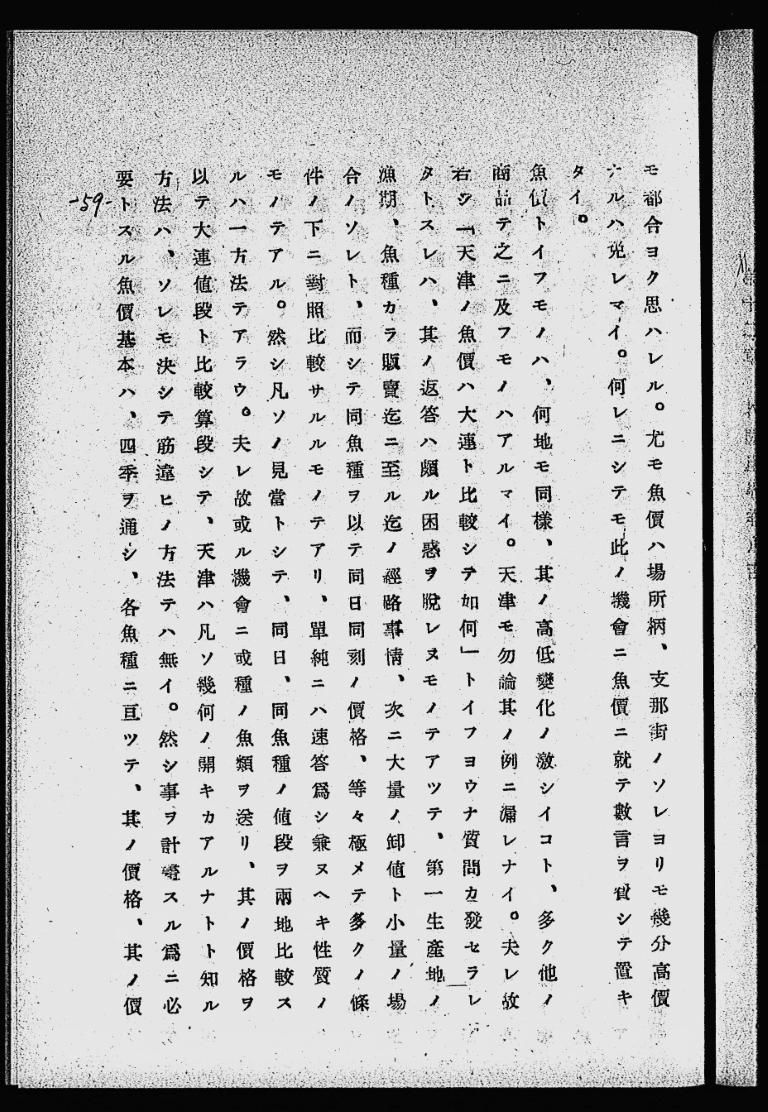 モ都合ヨク思ハレル。尤モ魚價ハ場所柄、支那街ノソレヨリモ幾分高價
ナルハ免レマイ。何レニシテモ此ノ機會ニ魚價ニ就テ數言ヲ費シテ置キ
タイ。
魚價トイフモノハ、何地モ同樣、其ノ高低變化ノ激シイコト、多ク他ノ
商品テ之ニ及フモノハアルマイ。天津モ勿論其ノ例ニ漏レナイ。夫レ故
若シ「天津ノ魚價ハ大連ト比較シテ如何」トイフヨウナ質問カ發セラレ
タトスレハ、其ノ返答ハ頗ル困惑ヲ脫レヌモノテアツテ、第一生產地ノ
漁期、魚種カラ販賣迄ニ至ル迄ノ經路事情、次ニ大量ノ卸値ト小量ノ場
合ノソレト、而シテ同魚種ヲ以テ同日同刻ノ價格、等々極メテ多クノ條
件ノ下ニ對照比較サルルモノテアリ、單純ニハ速答爲シ兼ヌヘキ性質ノ
モノテアル。然シ凡ソノ見當トシテ、同日、同魚種ノ値段ヲ兩地比較ス
ルハ一方法テアラウ。夫レ故或ル機會ニ或種ノ魚類ヲ送リ、其ノ價格ヲ
以テ大連値段ト比較算段シテ、天津ハ凡ソ幾何ノ開キカアルナトト知ル
方法ハ、ソレモ決シテ筋違ヒノ方法テハ無イ。然シ事ヲ計ルスル爲ニ必
要トスル魚價基本ハ、四季ヲ通シ、各魚種ニ亘ツテ、其ノ價格、其ノ價
-59-